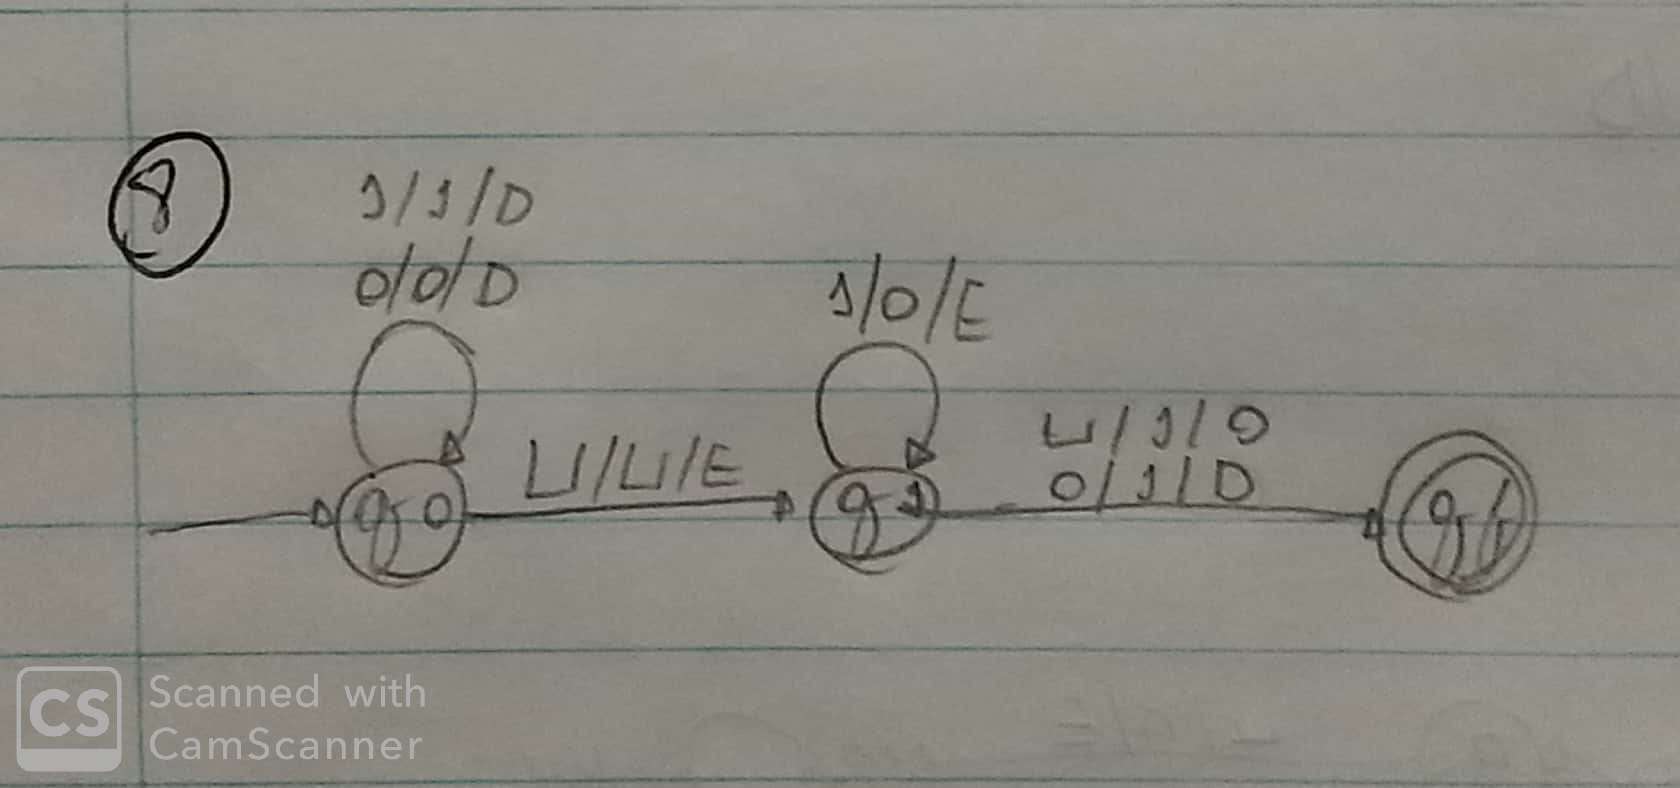 8
1/1/D
0/0/D
1/0/E
⊔/1/D
0/1/D
⊔/⊔/E
q0
q1
qf
CS Scanned with
CamScanner